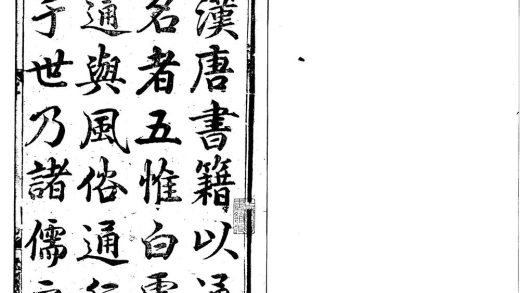 漢唐書籍以通
名者五惟白虎
通與風俗通行
于世乃諸儒